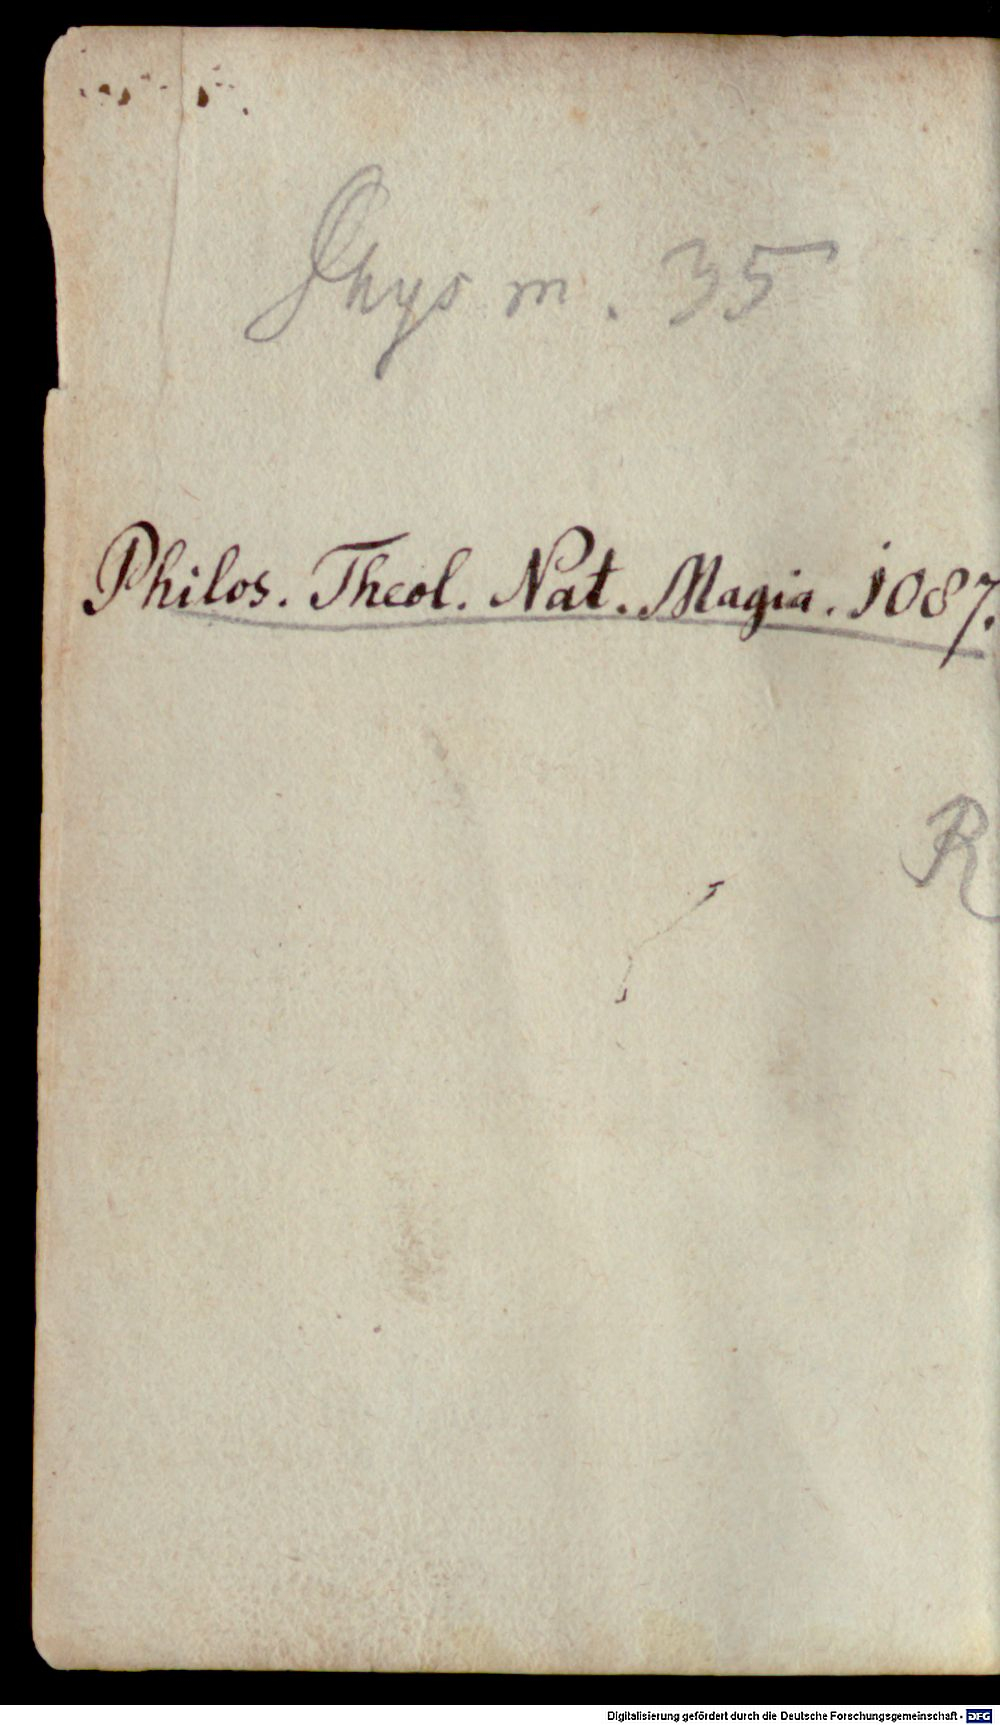 Phys m. 35
Philos. Theol. Nat. Magia. 1087.
R
Digitalisierung gefördert durch die Deutsche Forschungsgemeinschaft - DFG